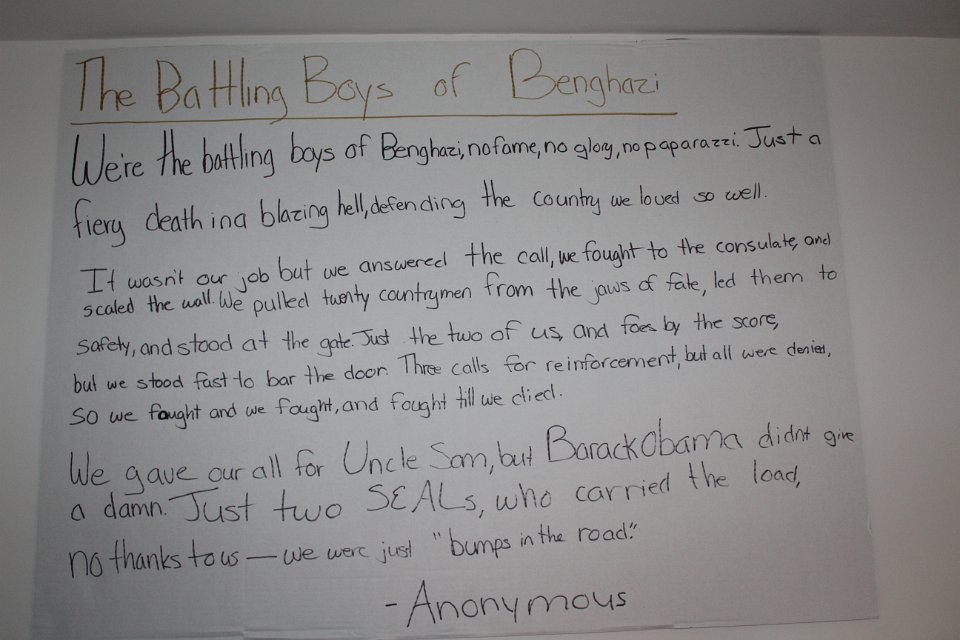 The Battling Boys of Benghazi
We're the battling boys of Benghazi, no fame, no glory, no paparazzi. Just a
fiery death in a blazing hell, defending the country we loved so well.
It wasn't our job but we answered the call, we fought to the consulate, and
scaled the wall. We pulled twenty countrymen from the jaws of fate, led them to
safety, and stood at the gate. Just the two of us, and foes by the score,
but we stood fast to bar the door. Three calls for reinforcement, but all were denied,
So we fought and we fought, and fought till we died.
We gave our all for Uncle Sam, but Barack Obama didnt give
a damn. Just two SEALs, who carried the load,
no thanks to us — we were just "bumps in the road."
- Anonymous